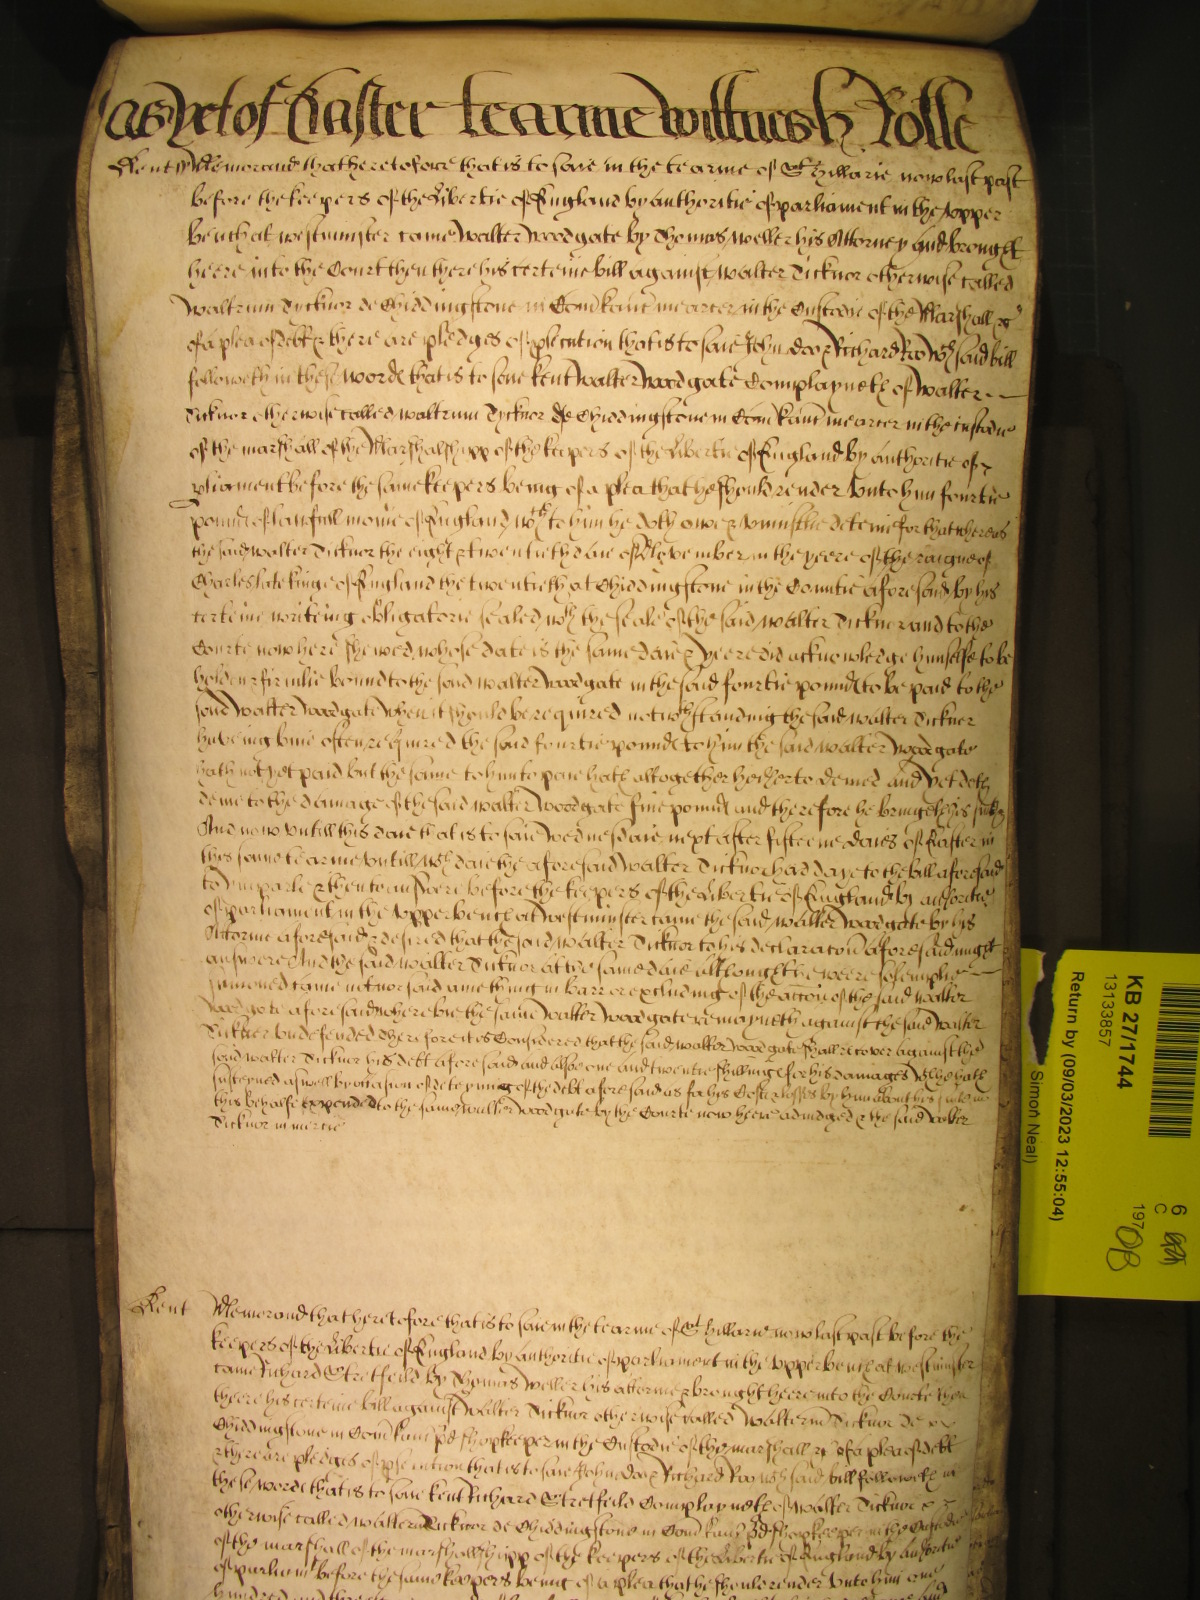 as yet of Easter tearme wittnesh Rolle
Kent ss Memorand that heretofore that is to saie in the tearme of St Hillarie now last past
before the keepers of the Libertie of England by authoritie of parliament in the upper
bench at westminster came Walter Woodgate by Thomas Weller his Attorney and brought
heere into the Court then there his certeine bill against Walter Ticknor otherwise called
Waltrum Tycknor de Chiddingstone in Com Kanc mercer in the Custodie of the Marshall &c
of a plea of debt & there are pledges of p'secution that is to saie John doo & Richard Roo wch said bill
followeth in these words that is to saie Kent Walter Woodgate Complayneth of Walter
Ticknor otherwise called waltrum Tycknor de Chiddingstone in Com Kanc mercer in the custodie
of the marshall of the Marshalshipp of the keepers of the Libertie of England by authoritie of
p'liament before the same keepers being of a plea that he should render unto him fourtie
pounds of lawfull monie of England wch to him he doth owe & uniustlie deteine for that whereas
the said walter Ticknor the eight & twentieth daie of November in the yeere of the raigne of
Charles late kinge of England the twentieth at Chiddingstone in the Countie aforesaid by his
certeine writeing obligatorie sealed wth the seale of the said walter Ticknor and to the
Courte now here shewed whose date is the same daie & yeere did acknowledge himselfe to be
holden & firmlie bound to the said walter Woodgate in the said fourtie pounds to be paid to the
said Walter Woodgate when it should be required notwthstanding the said walter Ticknor
haveing bine often required the said fourtie pounds to him the said walter Woodgate
hath not yet paid but the same to him to paie hath altogether hitherto denied and yet doth
denie to the damage of the said walter Woodgate five pounds and therefore he bringeth his suite
And now untill this daie that is to saie wednesdaie next after fifteene daies of Easter in
this same tearme untill wch daie the aforesaid walter Ticknor had daye to the bill aforesaid
to imparle & then to answere before the keepers of the Libertie of England by authoritie
of parliament in the upper bench at Westminster came the said walter Woodgate by his
Attornie aforesaid & desired that the said walter Ticknor to his declaracon aforesaid might
answere And the said walter Ticknor at the same daie although he weere solemplie
sumoned came not nor said aniething in barr or excluding of the accon of the said walter
Woodgate aforesaid wherebie the same Walter Woodgate remayneth against the said walter
Ticknor undefended Therefore it is Considered that the said walter Woodgate shall recover against the
said walter Ticknor his debt aforesaid and alsoe one and twentie shillings for his damages wch he hath
susteyned aswell by occasion of deteyning of the debt aforesaid as for his Costs & losses by him about his suite in
this behalfe expended to the same walter Woodgate by the Courte now heere adiudged & the said walter
Ticknor in mercie
Kent Memorand that heretofore that is to saie in the tearme of St Hillarie now last past before the
keepers of the Libertie of England by authoritie of parliament in the upper bench at westminster
came Richard Stretfeild by Thomas Weller his attornie & brought heere into the Courte then
theere his certeine bill against Walter Ticknor otherwise called Walterm Ticknor de
Chiddingstone in Com Kanc p'd shopkeeper in the Custodie of the marshall &c of a plea of debt
& there are pledges of p'secution that is to saie John doo & Richard Roo wch said bill followeth in
these words that is to saie Kent Richard Stretfeild Complayneth of Walter Ticknor
otherwise called Walterm Ticknor de Chiddingstone in Com Kanc p'd shopkeeper in the Custodie
of the marshall of the marshallshipp of the keepers of the Libertie of England by authoritie
of parliamt before the same keepers being of a plea that he should render unto him one
hundred and
KB 27/1744
13133857
Return by (09/03/2023 12:55:04)
Simon Neal)
6
C
197